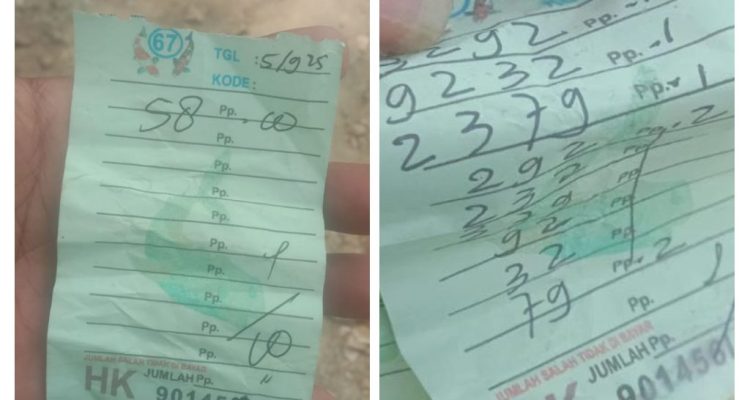 67
TGL : 5/9 25
KODE :
58 Pp. 10
Pp.
Pp.
Pp.
Pp.
Pp.
Pp.
Pp.
Pp.
Pp. 10
JUMLAH SALAH TIDAK DI BAYAR
HK JUMLAH Pp. "
901458
3292 Pp. - 1
9232 Pp. - 1
2379 Pp. - 1
292 Pp. - 2
Pp.
92 Pp.
32 Pp.
79 Pp. - 2
Pp.
JUMLAH SALAH TIDAK DI BAYAR
JUMLAH Pp.
901458